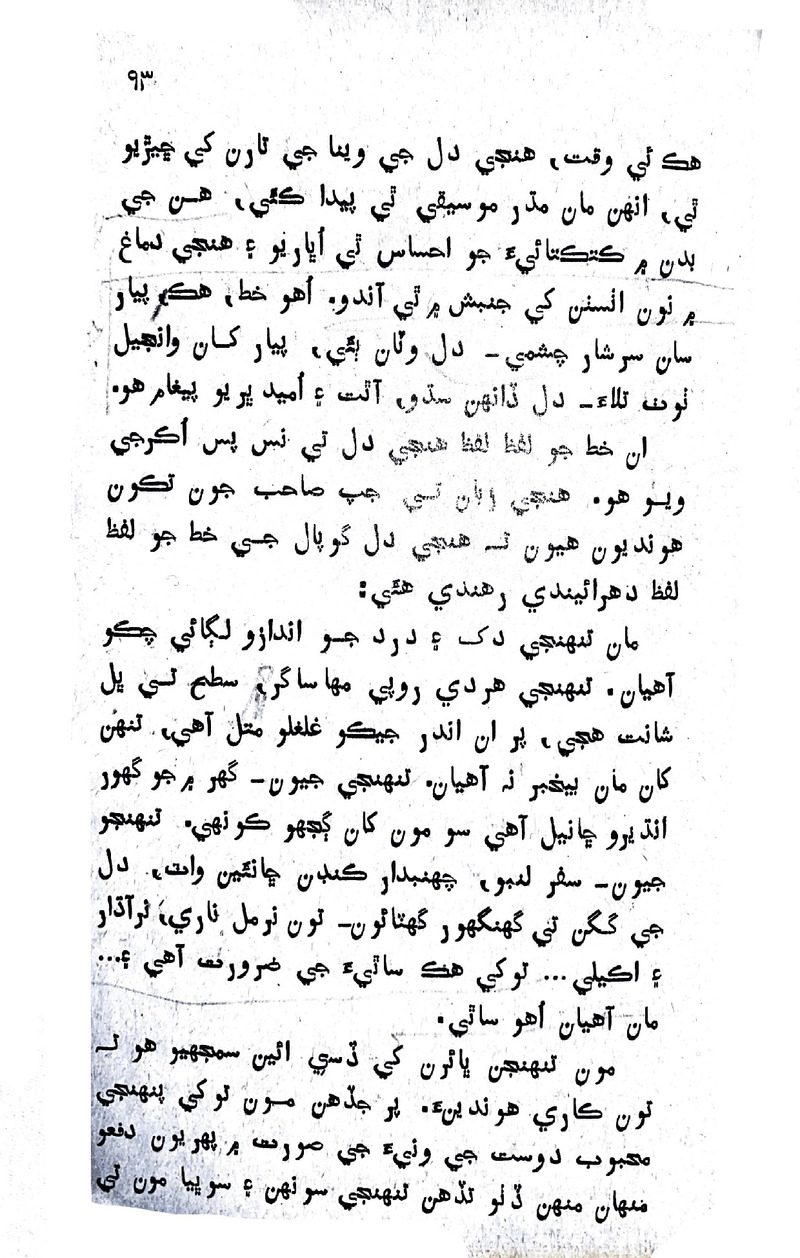 ۹۳
هڪ ئي وقت، هنجي دل جي وينا جي تارن کي ڇيڙيو
ٿي، انهن مان مڌر موسيقي ٿي پيدا ڪئي، هن جي
بدن ۾ ڪتڪتائيءَ جو احساس ٿي اُڀاريو ۽ هنجي دماغ
۾ نون اٺسٺن کي جنبش ۾ ٿي آندو. اُهو خط، هڪ، پيار
سان سرشار چشمي۔ دل وٽان ٻئي، پيار کان وانجهيل
ٺوٺ تلاءَ۔ دل ڏانهن سڌو، آٿت ۽ اُميد ڀريو پيغام هو.
ان خط جو لفظ لفظ هنجي دل تي نس پس اُڪرجي
ويو هو. هنجي زبان تي جپ صاحب جون تڪون
هونديون هيون تہ هنجي دل گوپال جي خط جو لفظ
لفظ دهرائيندي رهندي هئي:
مان تنهنجي دک ۽ درد جو اندازو لڳائي چڪو
آهيان. تنهنجي هردي روپي مهاساگر، سطح تي ڀل
شانت هجي، پر ان اندر جيڪو غلغلو متل آهي، تنهن
کان مان بيخبر نہ آهيان. تنهنجي جيون۔ گهر ۾ جو گهور
انڌيرو ڇانيل آهي سو مون کان ڳجهو ڪونهي. تنهنجو
جيون۔ سفر لنبو، چهنبدار ڪنڊن ڇانئين واٽ، دل
جي گگن تي گهنگهور گهٽائون۔ تون نرمل ناري، نرآڌار
۽ اڪيلي... توکي هڪ ساٿيءَ جي ضرورت آهي ۽...
مان آهيان اُهو ساٿي.
مون تنهنجن ڀائرن کي ڏسي ائين سمجهيو هو تہ
تون ڪاري هوندينءَ. پر جڏهن مون توکي پنهنجي
محبوب دوست جي ونيءَ جي صورت ۾ پهريون دفعو
منهان منهن ڏٺو تڏهن تنهنجي سونهن ۽ سوڀيا مون تي